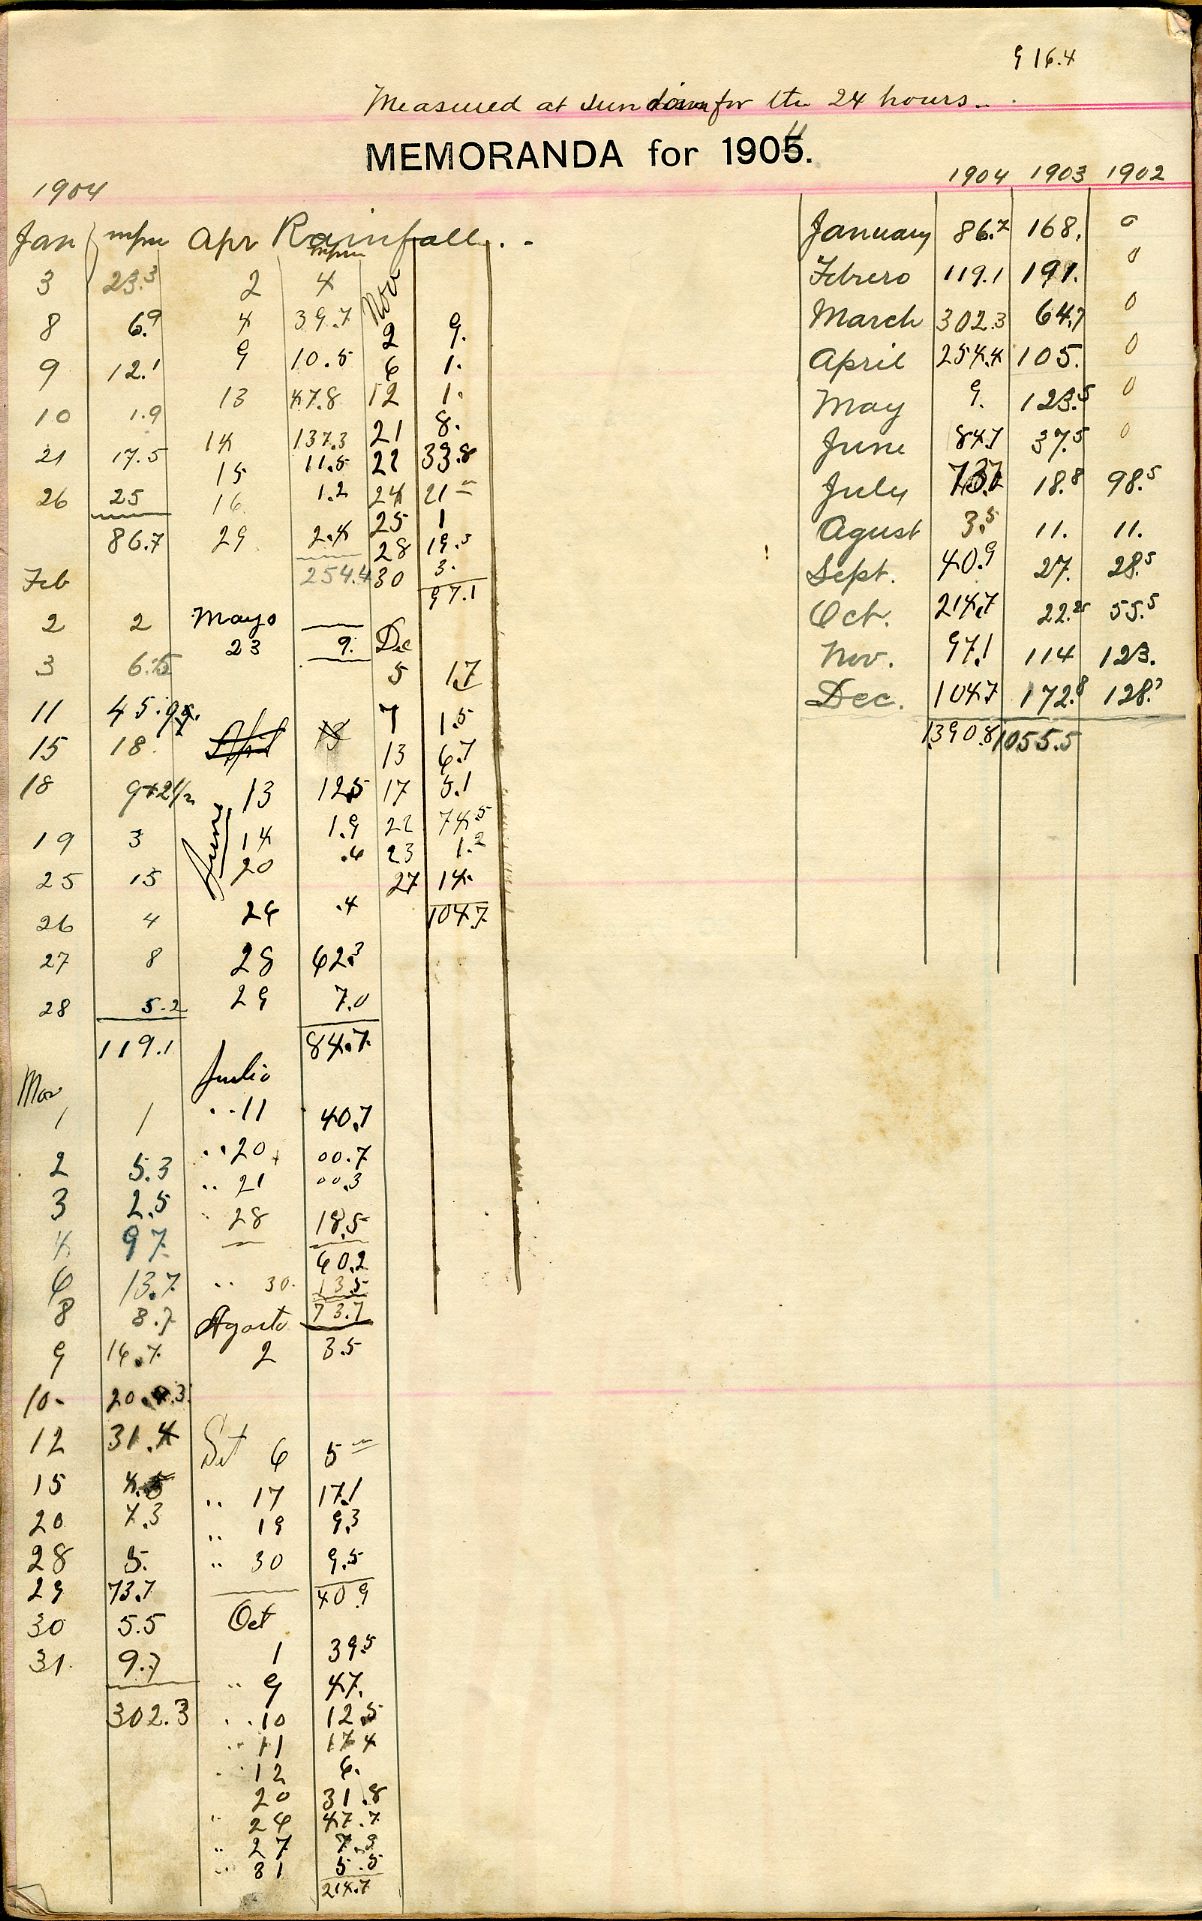 916.4
Measured at sundown for the 24 hours.
MEMORANDA for 1905.
1904
Rainfall.
Jan mpm
3 23.3
8 6.9
9 12.1
10 1.9
21 17.5
26 25
86.7
Feb
2 2
3 6.5
11 45.
15 18.
18 9+2½
19 3
25 15
26 4
27 8
28 5.2
119.1
Mar
1 1
2 5.3
3 2.5
4 97.
6 13.7
8 8.7
9 16.7
10. 20.3
12 31.4
15 4.5
20 7.3
28 5.
29 73.7
30 5.5
31. 9.7
302.3
Apr mpm
2 4
4 39.7
9 10.5
13 47.8
14 137.3
15 11.5
16 1.2
29 2.4
254.4
Mayo
23 9.
April 13
June
13 12.5
14 1.9
20 .6
24 .4
28 62.3
29 7.0
84.7
Julio
" 11 40.7
" 20 00.7
" 21 00.3
" 28 18.5
60.2
" 30. 13.5
73.7
Agosto
2 3.5
Set 6 5
" 17 17.1
" 19 9.3
" 30 9.5
40 9
Oct
1 39.5
" 9 47.
" 10 12.5
" 11 17 4
" 12 6.
20 31.8
" 24 47.7
" 27 7.3
" 31 5.5
214.7
Nov
2 9.
6 1.
12 1.
21 8.
22 33.8
24 21
25 1
28 19.3
30 3.
97.1
Dec
5 1.7
7 1.5
13 6.7
17 5.1
22 74.5
23 1.2
27 14.
104.7
1904 1903 1902
January 86.7 168. 0
Febrero 119.1 191. 0
March 302.3 64.7 0
April 254.4 105. 0
May 9. 123.5 0
June 84.7 37.5 0
July 73.7 18.8 98.5
Agust 3.5 11. 11.
Sept. 40.9 27. 28.5
Oct. 214.7 22.25 55.5
Nov. 97.1 114 123.
Dec. 104.7 172.8 128.7
1390.8 1055.5